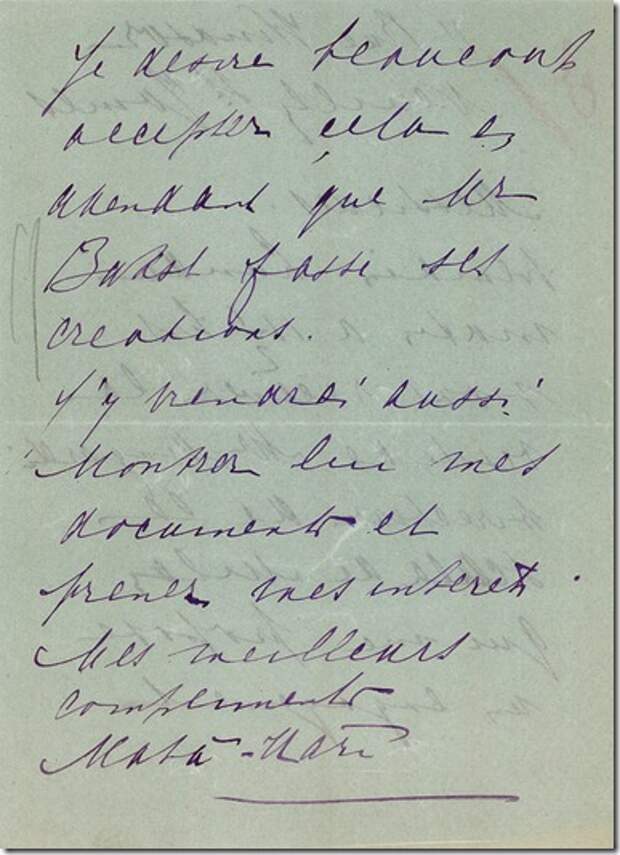 Je desire beaucoup
accepter cela en
attendant que Mr
Bakst fasse ses
creations.
J'y viendrai aussi
Montrez lui mes
documents et
prenez mes interets.
Mes meilleurs
compliments
Mata-Hari